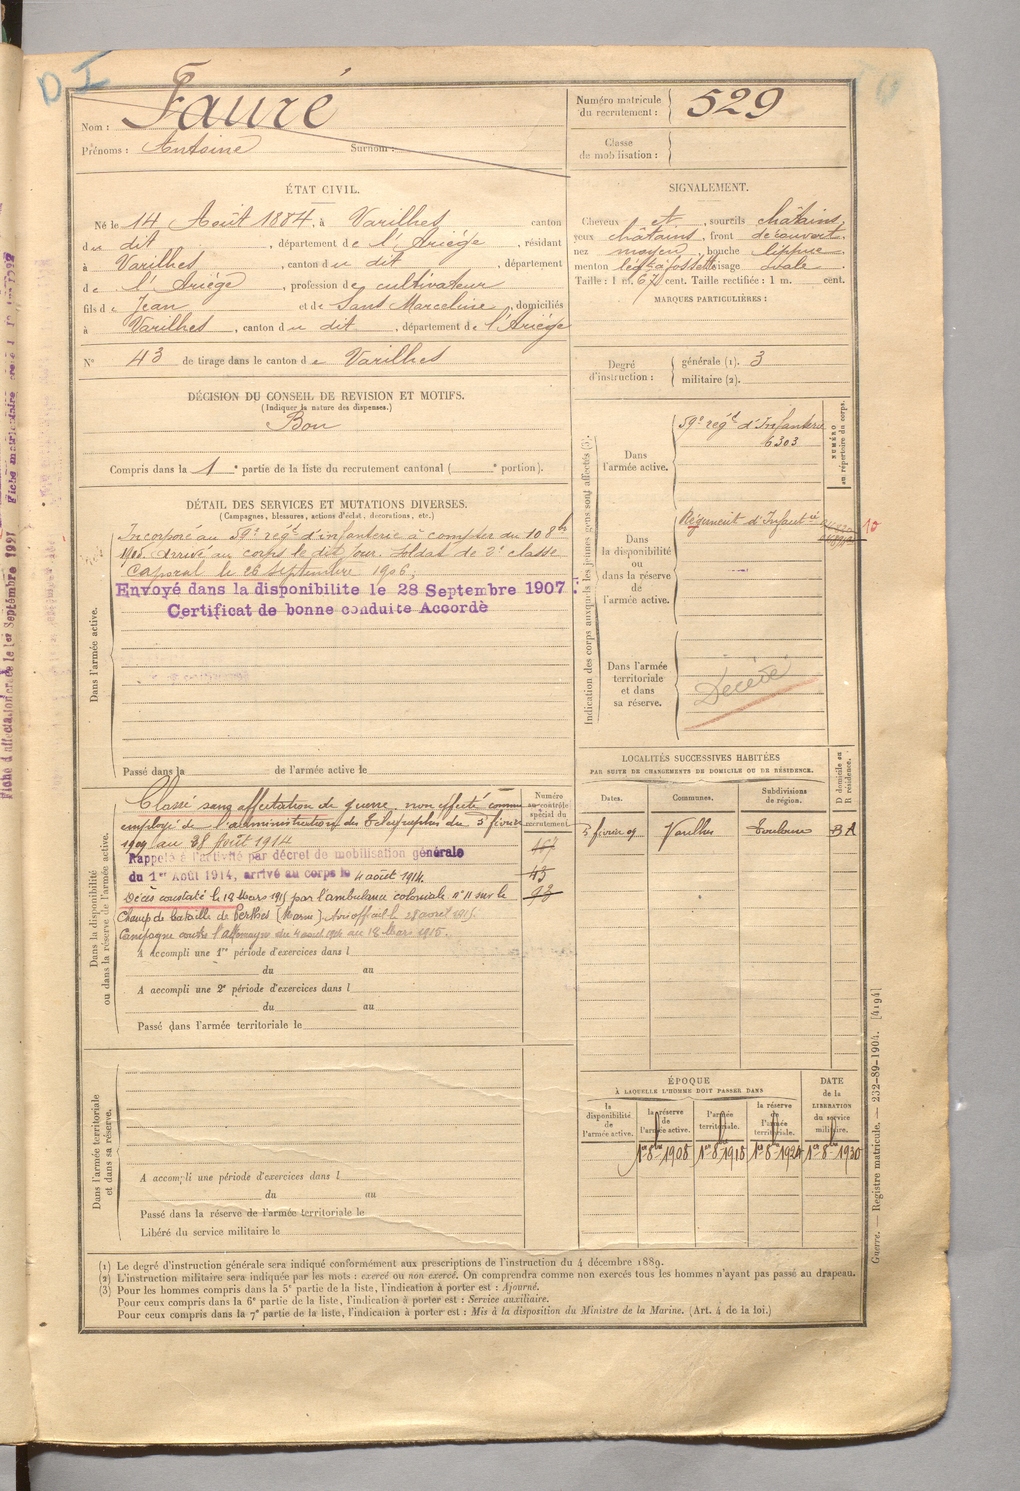 D I
Fauré
Nom :
Prénoms : Antoine Surnom :
Numéro matricule
du recrutement : 529
Classe
de mobilisation :
ÉTAT CIVIL.
Né le 14 Août 1884, à Varilhes canton
du dit, département de l'Ariège, résidant
à Varilhes, canton du dit, département
de l'Ariège, profession de cultivateur
fils de Jean et de Sans Marceline, domiciliés
à Varilhes, canton du dit, département de l'Ariège
N° 43 de tirage dans le canton de Varilhes
SIGNALEMENT.
Cheveux et, sourcils châtains,
yeux châtains, front découvert,
nez moyen, bouche lippue
menton visage ovale.
Taille : 1 m. 67 cent. Taille rectifiée : 1 m. cent.
MARQUES PARTICULIÈRES :
Degré
d'instruction :
générale (1). 3
militaire (2).
DÉCISION DU CONSEIL DE REVISION ET MOTIFS.
(Indiquer la nature des dispenses.)
Bon
Compris dans la 1e partie de la liste du recrutement cantonal ( e portion).
DÉTAIL DES SERVICES ET MUTATIONS DIVERSES.
(Campagnes, blessures, actions d'éclat, décorations, etc.)
Dans l'armée active.
Incorporé au 59e régt d'infanterie à compter du 10 8bre
1905. Arrivé au corps le dit jour. Soldat de 2e classe
Caporal le 26 Septembre 1906,
Envoyé dans la disponibilité le 28 Septembre 1907
Certificat de bonne conduite Accordé
Passé dans la de l'armée active le
Indication des corps auxquels les jeunes gens sont affectés (3).
NUMÉRO
au répertoire du corps.
Dans
l'armée active.
59e régt d'Infanterie
6303
Dans
la disponibilité
ou
dans la réserve
de
l'armée active.
Régiment d'Infantie
10
Dans l'armée
territoriale
et dans
sa réserve.
Décédé
Dans la disponibilité
ou dans la réserve de l'armée active.
Classé sans affectation de guerre, non affecté comme
employé de l'administration des Télégraphes du 5 février
1909 au 28 Août 1914
Rappelé à l'activité par décret de mobilisation générale
du 1er Août 1914, arrivé au corps le 4 août 1914.
Décès constaté le 18 Mars 1915 par l'ambulance coloniale n° 11 sur le
Champ de bataille de Perthes (Marne). Avis officiel le 28 avril 1915.
Campagne contre l'Allemagne du 4 août 1914 au 18 Mars 1915.
Numéro
au contrôle
spécial du
recrutement.
43
A accompli une 1re période d'exercices dans l
du au
A accompli une 2e période d'exercices dans l
du au
Passé dans l'armée territoriale le
LOCALITÉS SUCCESSIVES HABITÉES
PAR SUITE DE CHANGEMENTS DE DOMICILE OU DE RÉSIDENCE.
Dates. Communes. Subdivisions
de région.
D domicile ou
R résidence.
5 février 09 Varilhes Toulouse
ÉPOQUE
À LAQUELLE L'HOMME DOIT PASSER DANS
la
disponibilité
de
l'armée active.
la réserve
de
l'armée active.
l'armée
territoriale.
la réserve
de
l'armée
territoriale.
DATE
de la
LIBÉRATION
du service
militaire.
1er 8bre 1908 1er 8bre 1918 1er 8bre 1924 1er 8bre 1930
Dans l'armée territoriale
et dans sa réserve.
A accompli une période d'exercices dans l
du au
Passé dans la réserve de l'armée territoriale le
Libéré du service militaire le
(1) Le degré d'instruction générale sera indiqué conformément aux prescriptions de l'instruction du 4 décembre 1889.
(2) L'instruction militaire sera indiquée par les mots : exercé ou non exercé. On comprendra comme non exercés tous les hommes n'ayant pas passé au drapeau.
(3) Pour les hommes compris dans la 5e partie de la liste, l'indication à porter est : Ajourné.
Pour ceux compris dans la 6e partie de la liste, l'indication à porter est : Service auxiliaire.
Pour ceux compris dans la 7e partie de la liste, l'indication à porter est : Mis à la disposition du Ministre de la Marine. (Art. 4 de la loi.)
Guerre. — Registre matricule. — 232-89-1904. [4194]